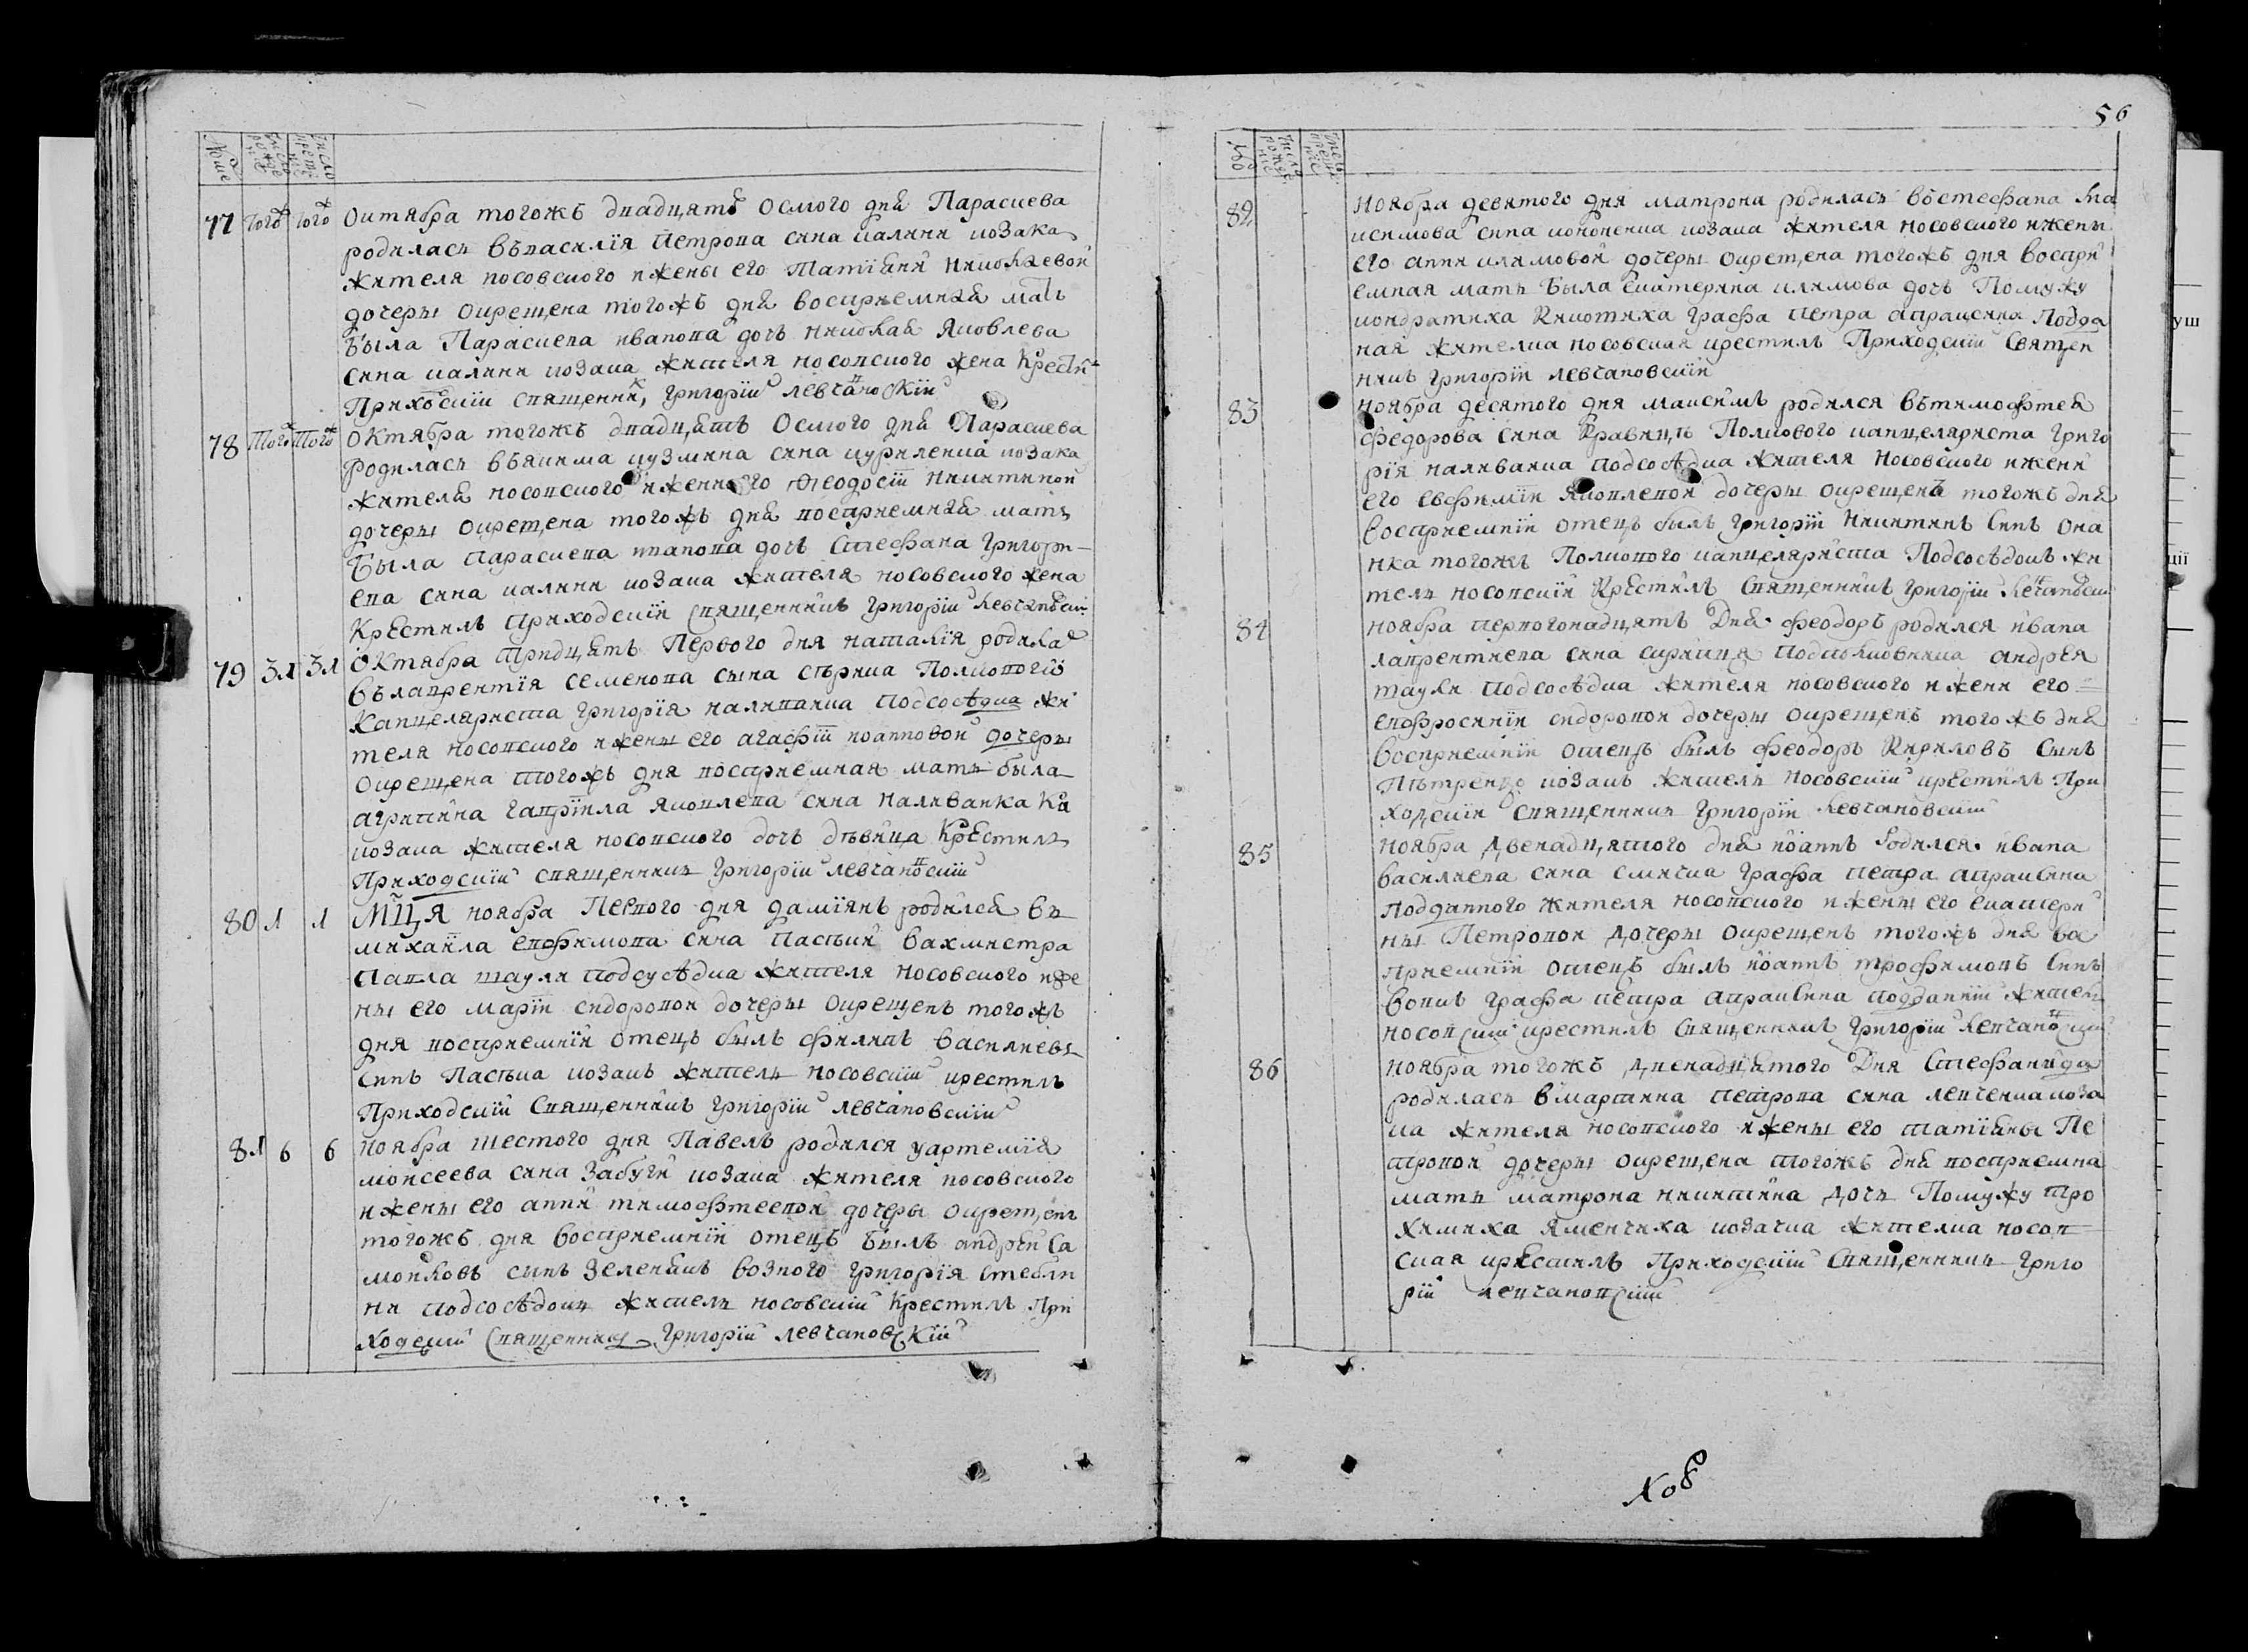 №ие
число рожде ния
число креще ния
77 того того Октября тогожъ двадцять осмого дня Параскева
родилась въвасилія Петрова сина калини козака
жителя носовского и жены его Татіяни николаевой
дочеры окрещена тогожъ дня восприемная мать
была Параскева иванова дочъ николая Яковлева
сина калини козака жителя носовского жена Крести
Приходскій священник, Григорій левчановскій
78 того того Октября тогожъ двадцять осмого дня Парасиева
родилась въякима кузмина сина куриленка козака
жителя носовского и жени его Феодосіи никитиной
дочеры окрещена тогожъ дня восприемная мать
была Параскева иванова дочъ Стефана Григори-
ева сина калини козака жителя носовского жена
Крестилъ Приходский священникъ Григорій левчановскій
79 31 31 Октября тридцять Первого дня наталія родилась
въ лаврентія семенова сына сърика Полкового
Канцеляриста Григорія наливайка Подсосѣдка жи
теля носовского и жены его агафіи иоанновой дочеры
окрещена тогожъ дня восприемная мать была
агрипина гавріила яковлева сина наливайка
козака жителя носовского дочъ дѣвица Крестилъ
Приходскій священникъ Григорій левчановскій
80 1 1 Мця ноября Первого дня даміянъ родился въ
михаила евфимова сина Пастки вахмистра
Павла шаули подсусѣдка жителя носовского и же
ны его маріи сидоровой дочеры окрещенъ тогожъ
дня восприемній отецъ былъ филипъ василиевъ
синъ Пастка козакъ житель носовскій крестилъ
Приходский Священникъ Григорій левчановскій
81 6 6 ноября шестого дня Павелъ родился у артемія
моисеева сина Забуги козака жителя носовского
и жены его анни тимофтеевой дочеры окрещенъ
тогожъ дня восприемній отецъ былъ андрей са
мойловъ сынъ зеленяшъ возного Григорія стебли
ни подсосѣдокъ житель носовскій Крестилъ При
ходский Священникъ Григорій левчановскій
56
число рожде ния
82 ноября девятого дня матрона родилась въстефана ма
ксимова сина кононенка козака жителя носовского и жены
его анни климовой дочеры окрещена тогожъ дня воспри
емная мать была екатерина климова дочъ По мужу
кондратиха графа Петра апраксина Подда
ная жителка носовская крестилъ Приходскій Священ
никъ Григорій левчановскій
83 ноября десятого дня максимъ родился вътимофтея
федорова сина Кравця Полкового канцеляриста Григо
рія наливайка подсосѣдка жителя носовского и жени
его евфиміи яковлевой дочеры окрещенъ тогожъ дня
восприемній отецъ былъ Григорій никитинъ Синъ она
нка тогожъ Полкового канцеляриста Подсосѣдокъ жи
тель носовскій Крестилъ Священникъ Григорій левчановскій
84 ноября первогонадцять Дня феодоръ родился ивана
лаврентиева сина сирика Подполковника андрея
шаули подсосѣдка жителя носовского и жени его
евфросиніи сидоровой дочеры окрещенъ тогожъ дня
восприемній отецъ былъ феодоръ Кириловъ Сынъ
Пѣтренко козакъ житель носовскій крестилъ При
ходский священникъ Григорій левчановскій
85 ноября двенадцятого дня иоаннъ родился ивана
василиева сина смичка Графа Петра апраксина
Подданного жителя носовского и жены его екатери
ны Петровой дочеры окрещенъ тогожъ дня во
приемній отецъ былъ иоаннъ трофимовъ Синъ
вовкъ Графа Петра апраксина подданній житель
носовскій крестилъ Священникъ Григорій левчановскій
86 ноября тогожъ двенадцятого Дня Стефанида
родилась в мартина Петрова сина левченка коза
ка жителя носовского и жены его татіяны Пе
тровой дочеры окрещена тогожъ дня восприемна
мать матрона никитина дочъ По мужу тро
химиха яменчиха козачка жителка носов
ская крестилъ Приходскій Священникъ Григо
рій левчановскій
№8
уш
ції